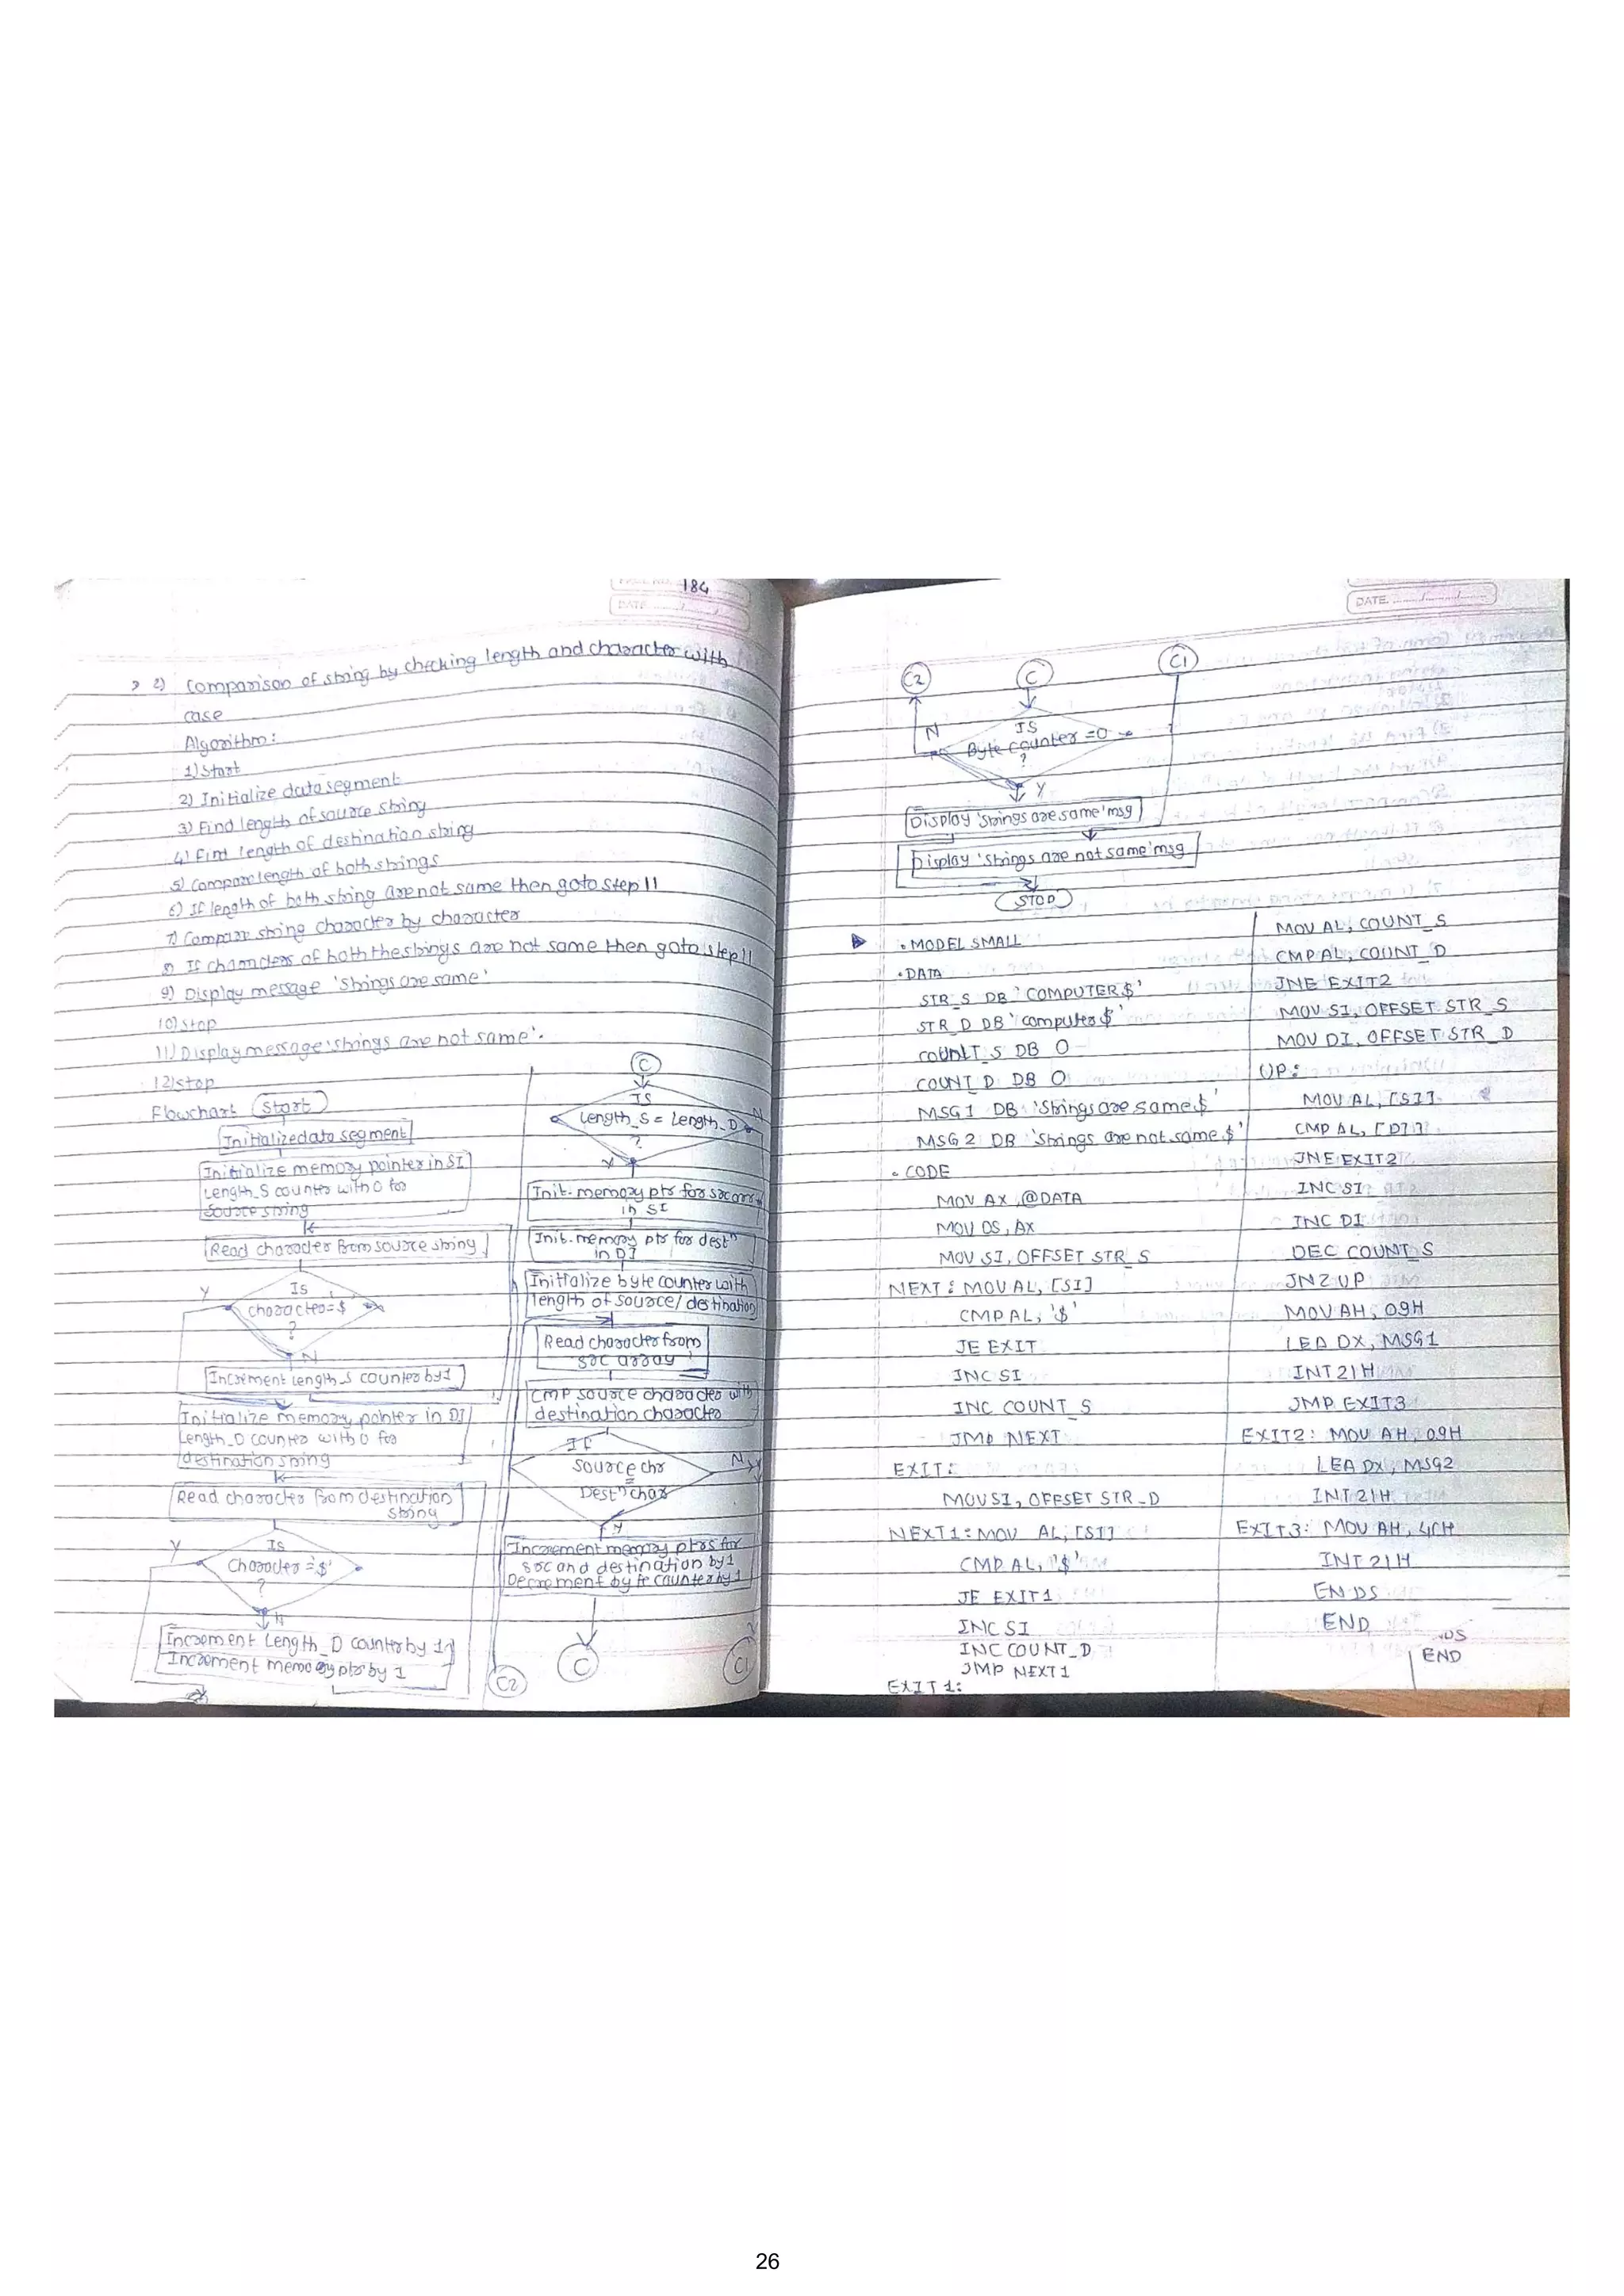 184
DATE
2) Comparison of string by checking length and character with
case
Algorithm:
1) Start
2) Initialize data segment
3) Find length of source string
4) Find length of destination string
5) Compare length of both strings
6) If length of both string are not same then goto step 11
7) Compare string character by character
8) If characters of both the strings are not same then goto step 11
9) Display message 'strings are same'
10) stop
11) Display message 'strings are not same'.
12) stop
Flowchart
Start
Initialize data segment
Initialize memory pointer in SI
Length_S counter with 0 for
source string
Read character from source string
Is
character='$'
?
Y
N
Increment Length_S counter by 1
Initialize memory pointer in DI
Length_D counter with 0 for
destination string
Read character from destination
string
Y
Is
Character='$'
?
N
Increment Length_D counter by 1
Increment memory ptr by 1
C
IS
Length_S = Length_D
?
N
Y
Init. memory ptr for src array
in SI
Init. memory ptr for destn
in DI
Initialize byte counter with
length of source/destination
Read character from
src array
CMP source character with
destination character
If
source chr
=
Destn char
N
Y
Increment memory ptrs for
src and destination by 1
Decrement byte counter by 1
C2
C
C1
DATE
C2
C
C1
N
IS
Byte counter =0
?
Y
Display 'Strings are same' msg
Display 'Strings are not same' msg
STOP
.MODEL SMALL
.DATA
STR_S DB 'COMPUTER$'
STR_D DB 'computer$'
COUNT_S DB 0
COUNT_D DB 0
MSG1 DB 'Strings are same$'
MSG2 DB 'Strings are not same$'
.CODE
MOV AX,@DATA
MOV DS,AX
MOV SI, OFFSET STR_S
NEXT: MOV AL, [SI]
CMP AL, '$'
JE EXIT
INC SI
INC COUNT_S
JMP NEXT
EXIT:
MOV SI, OFFSET STR_D
NEXT1: MOV AL, [SI]
CMP AL, '$'
JE EXIT1
INC SI
INC COUNT_D
JMP NEXT1
EXIT1:
MOV AL, COUNT_S
CMP AL, COUNT_D
JNE EXIT2
MOV SI, OFFSET STR_S
MOV DI, OFFSET STR_D
UP:
MOV AL, [SI]
CMP AL, [DI]
JNE EXIT2
INC SI
INC DI
DEC COUNT_S
JNZ UP
MOV AH, 09H
LEA DX, MSG1
INT 21H
JMP EXIT3
EXIT2: MOV AH, 09H
LEA DX, MSG2
INT 21H
EXIT3: MOV AH, 4CH
INT 21H
ENDS
END
END
26